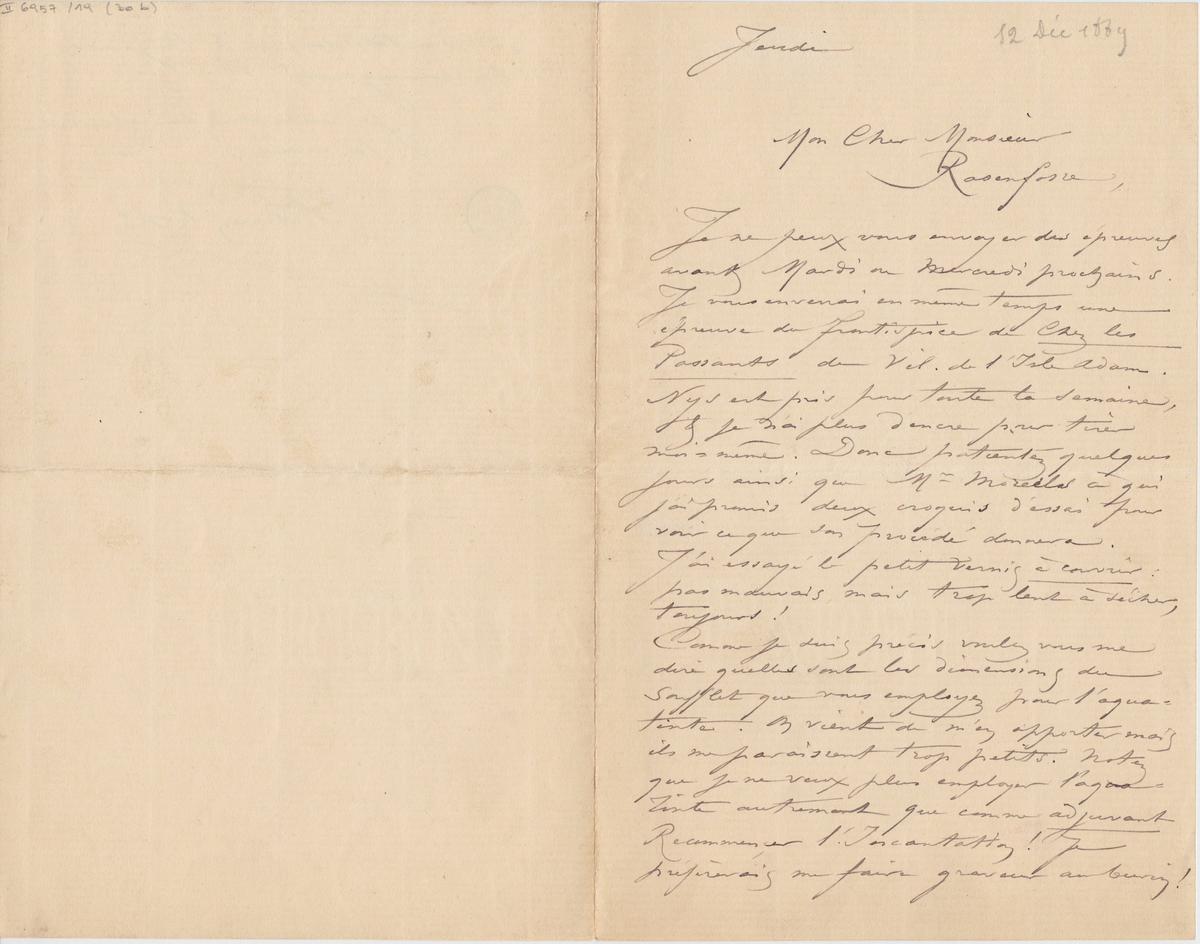 II 6957 /19 (20 b)
Jeudi
12 Déc 1889
Mon Cher Monsieur
Rassenfosse,
Je ne peux vous envoyer des épreuves
avant Mardi ou Mercredi prochains.
Je vous enverrai en même temps une
épreuve du frontispice de Chez les
Passants de Vil. de l'Isle Adam.
Nys est pris pour toute la semaine,
& je n'ai plus d'encre pour tirer
moi même. Donc patientez quelques
jours ainsi que Mr à qui
j'ai promis deux croquis d'essai pour
voir ce que son procédé donnera.
J'ai essayé le petit vernis à couvrir :
pas mauvais mais trop lent à sécher,
toujours !
Comme je suis précis voulez vous me
dire quelles sont les dimensions du
soufflet que vous employez pour l'aqua-
tinte ! On vient de m'en apporter mais
ils me paraissent trop petits. Notez
que je ne veux plus employer l'aqua-
tinte autrement que comme adjuvant
Recommencer l'Incantation ! Je
préférerais me faire graveur au burin !